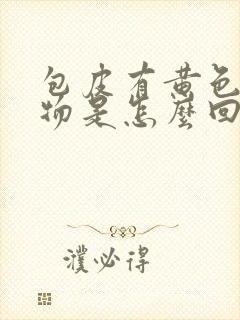 包皮有黄色
物是怎麼回
濮必得